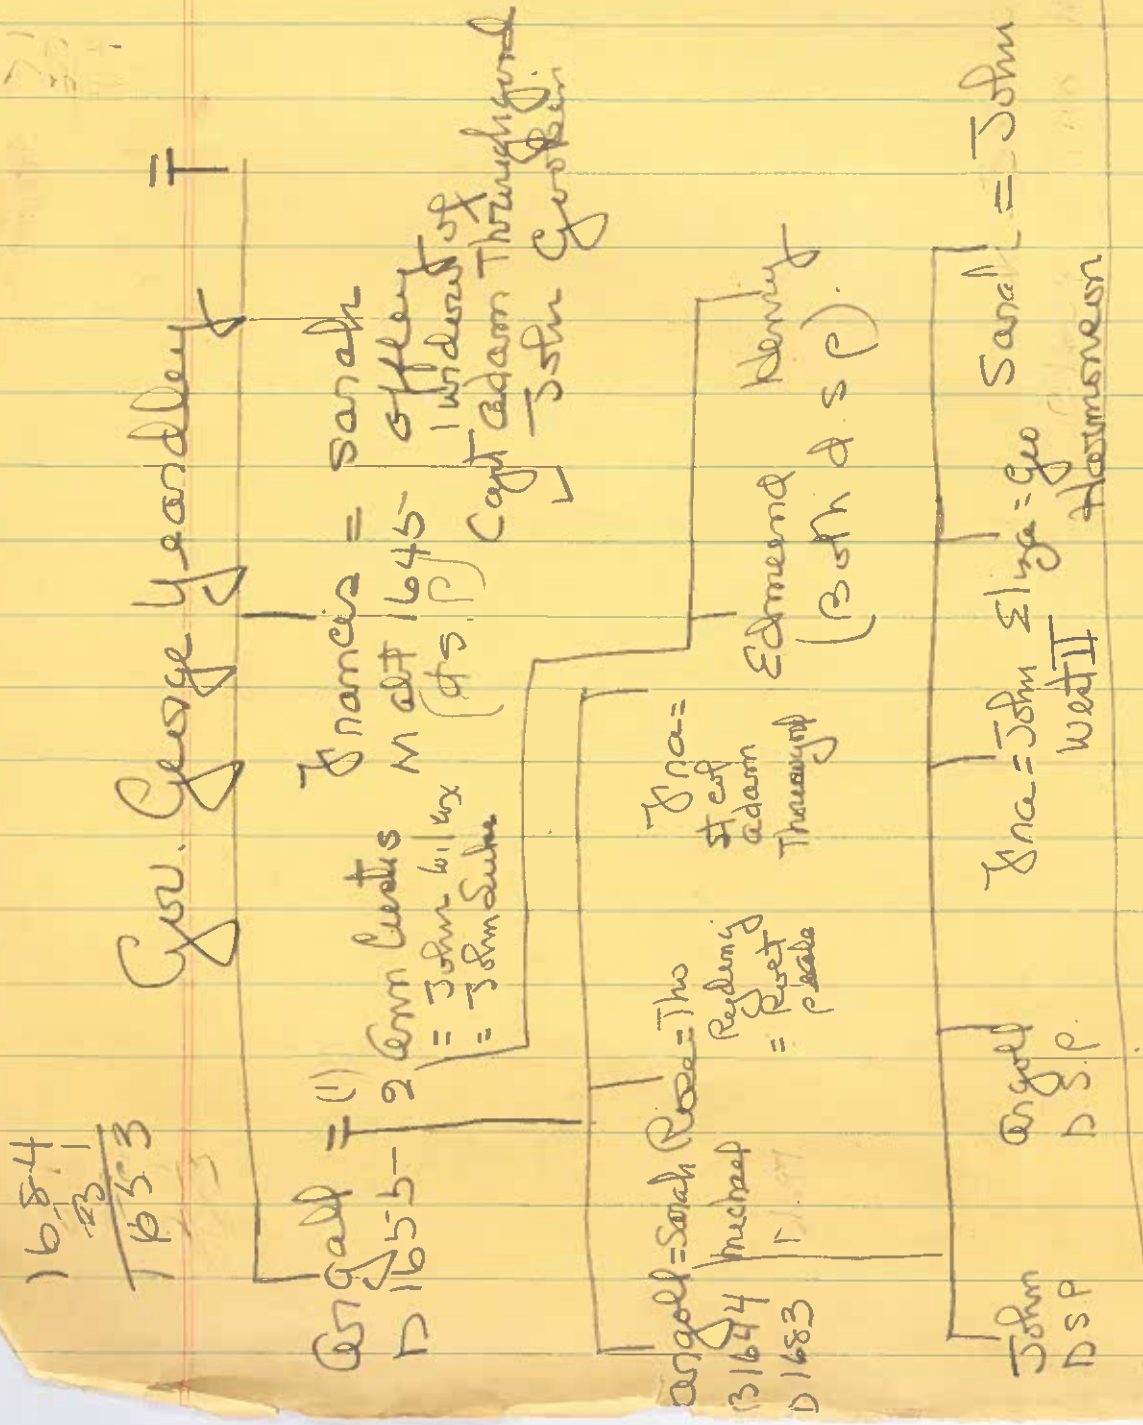 1684
31
1653
Gov. George Yeardley =
Argall = (1)
D 1655-
2 Ann Custis
= John Wilkox
= John
Francis = Sarah
M abt 1645
(d s. p)
Offley
widow of
Capt Adam Thoroughgood
John Gookin
Argoll = Sarah
B 1644
D 1683
Michael
Rose = Tho
Reydeng
= Robt
Peale
Fra =
Adam
Thorowgood
Edmeend Henry
(Both d s p).
John
D S P
Argoll
D S. P.
Fra = John
West II
Eliza = Geo
Harmoneson
Sarah = John